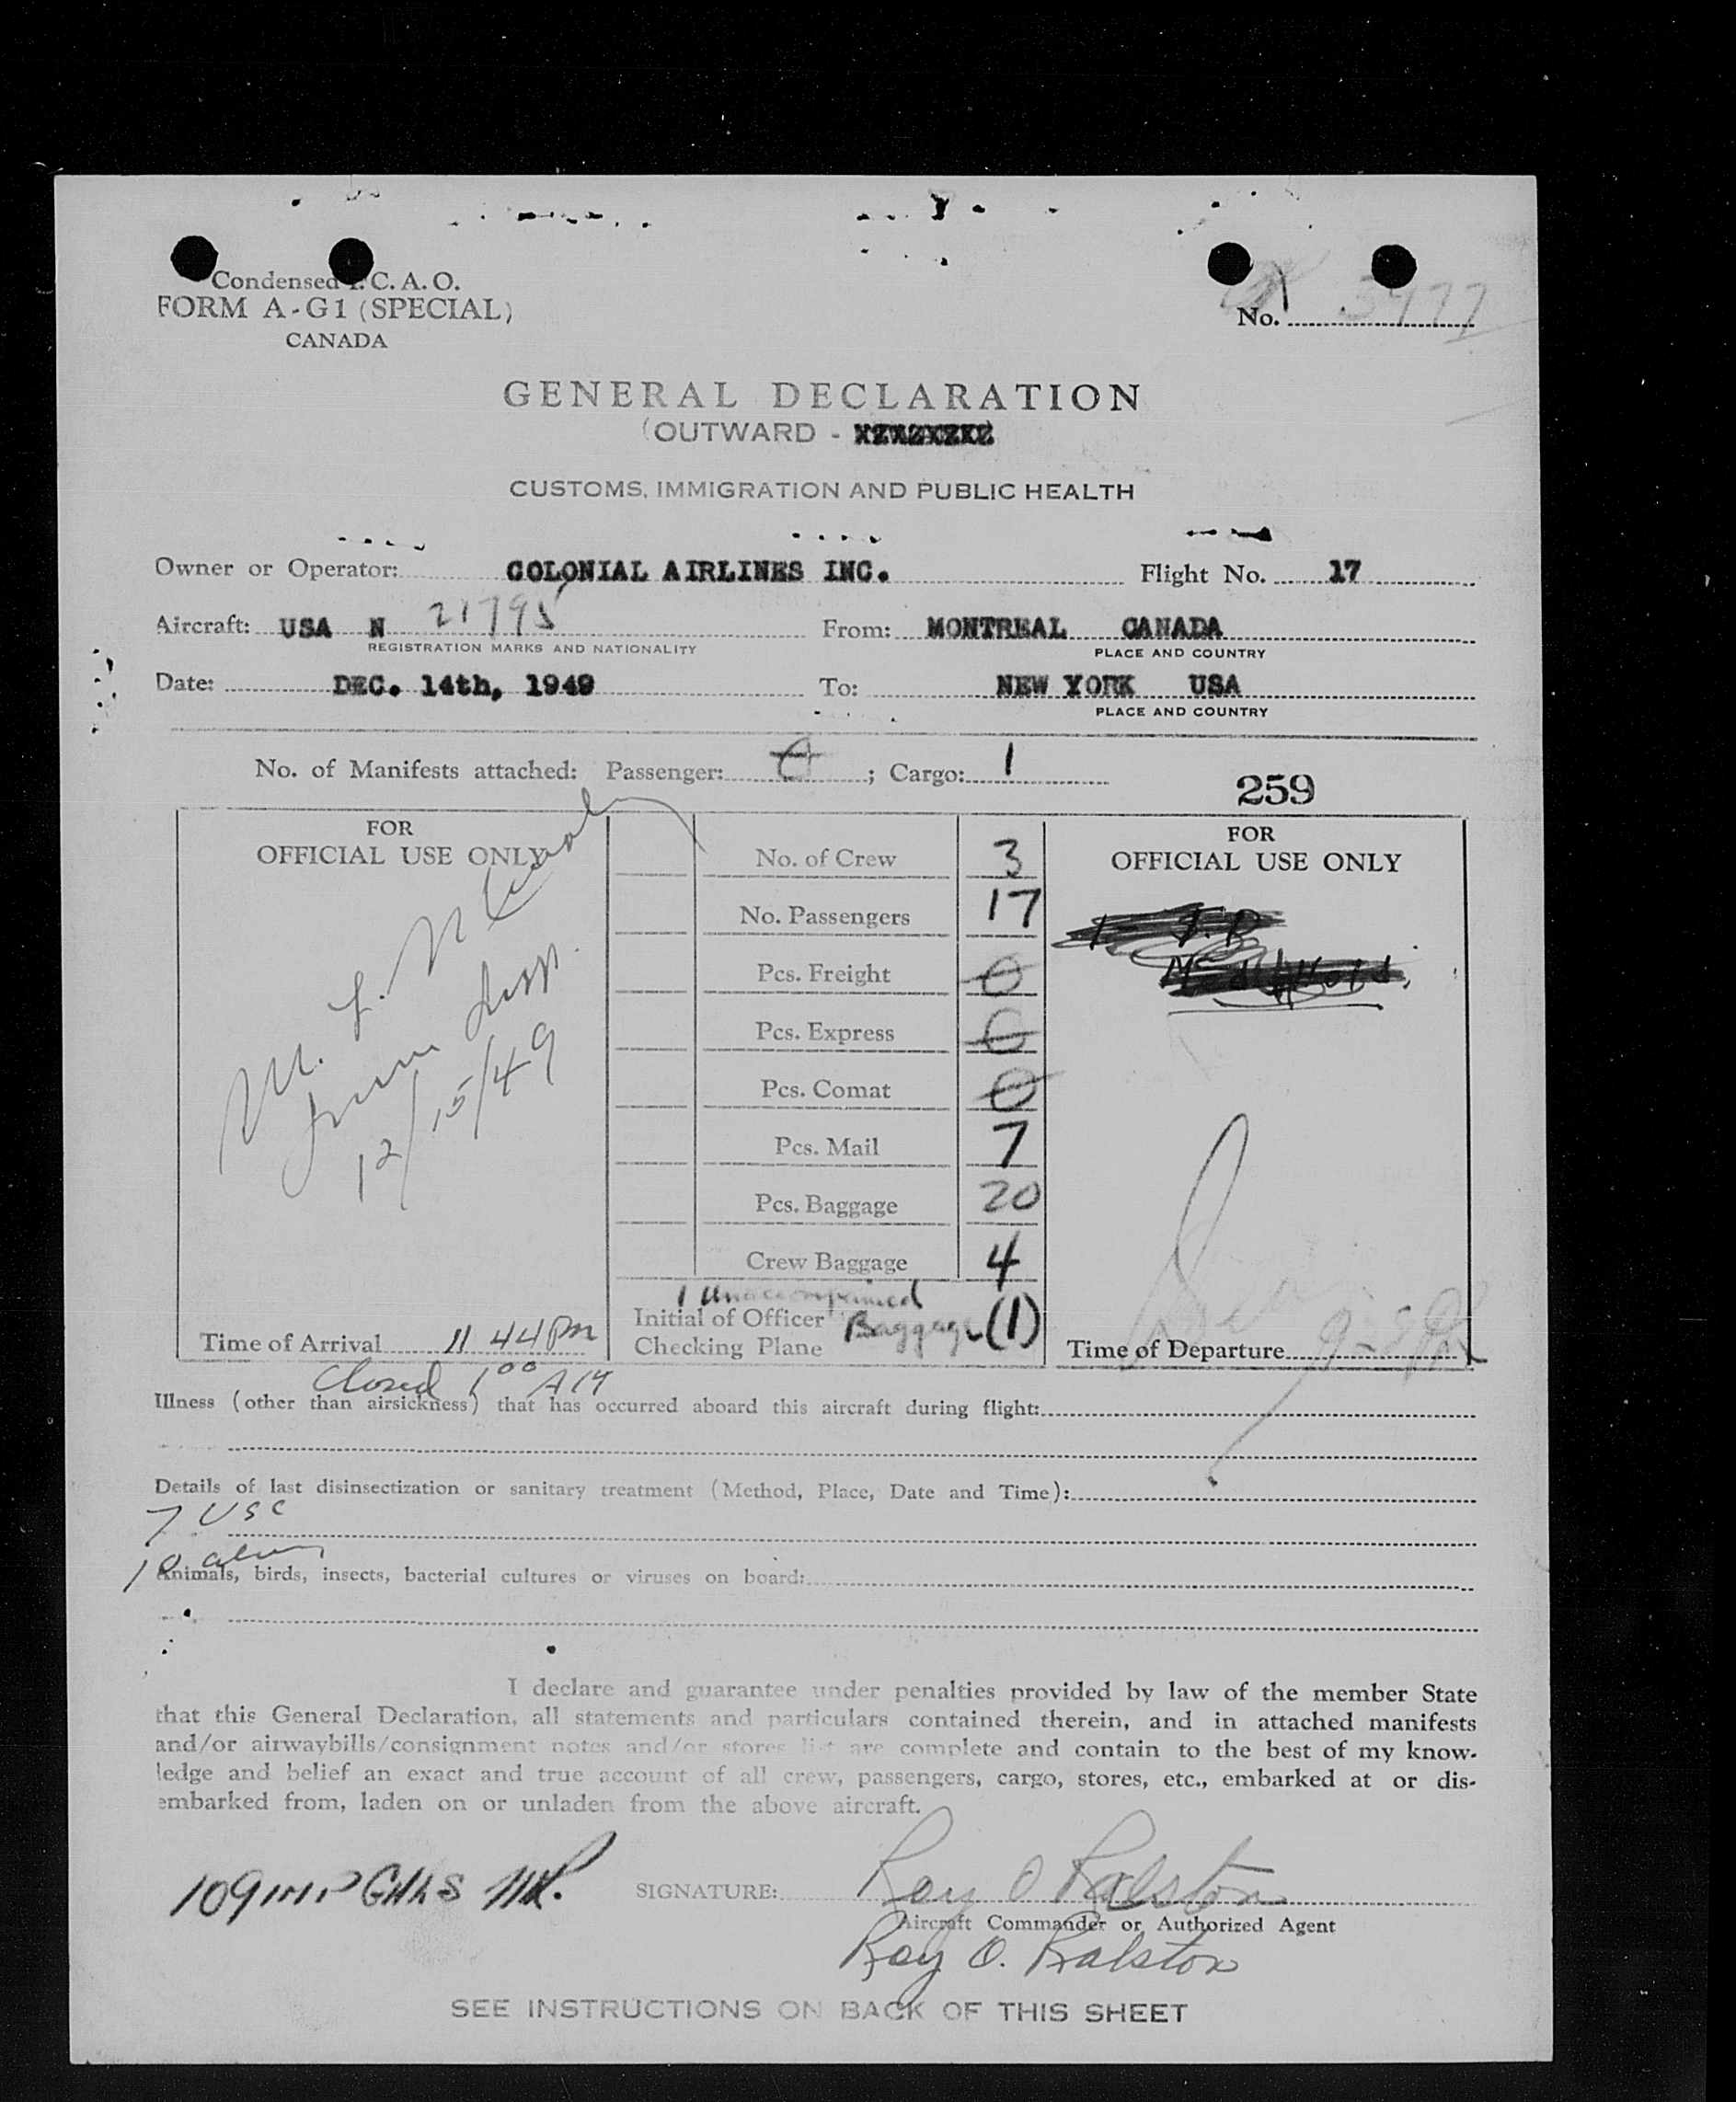 Condensed I. C. A. O.
FORM A-G1 (SPECIAL)
CANADA
No.
GENERAL DECLARATION
(OUTWARD -
CUSTOMS, IMMIGRATION AND PUBLIC HEALTH
Owner or Operator: COLONIAL AIRLINES INC. Flight No. 17
Aircraft: USA N 21795 From: MONTREAL CANADA
REGISTRATION MARKS AND NATIONALITY PLACE AND COUNTRY
Date: DEC. 14th, 1949 To: NEW YORK USA
PLACE AND COUNTRY
No. of Manifests attached: Passenger: 0 ; Cargo: 1
259
FOR
OFFICIAL USE ONLY
M. L.
Imm Insp.
12/15/49
Time of Arrival 11 44 PM
Closed 1 00 AM
No. of Crew 3
No. Passengers 17
Pcs. Freight 0
Pcs. Express 0
Pcs. Comat 0
Pcs. Mail 7
Pcs. Baggage 20
Crew Baggage 4
1 Unaccompanied
Initial of Officer Baggage (1)
Checking Plane
FOR
OFFICIAL USE ONLY
Time of Departure
Illness (other than airsickness) that has occurred aboard this aircraft during flight:
Details of last disinsectization or sanitary treatment (Method, Place, Date and Time):
7 USC
10 alien
Animals, birds, insects, bacterial cultures or viruses on board:
I declare and guarantee under penalties provided by law of the member State
that this General Declaration, all statements and particulars contained therein, and in attached manifests
and/or airwaybills/consignment notes and/or stores list are complete and contain to the best of my know-
ledge and belief an exact and true account of all crew, passengers, cargo, stores, etc., embarked at or dis-
embarked from, laden on or unladen from the above aircraft.
109 IMP GALS
SIGNATURE: Roy O Ralston
Aircraft Commander or Authorized Agent
Roy O. Ralston
SEE INSTRUCTIONS ON BACK OF THIS SHEET